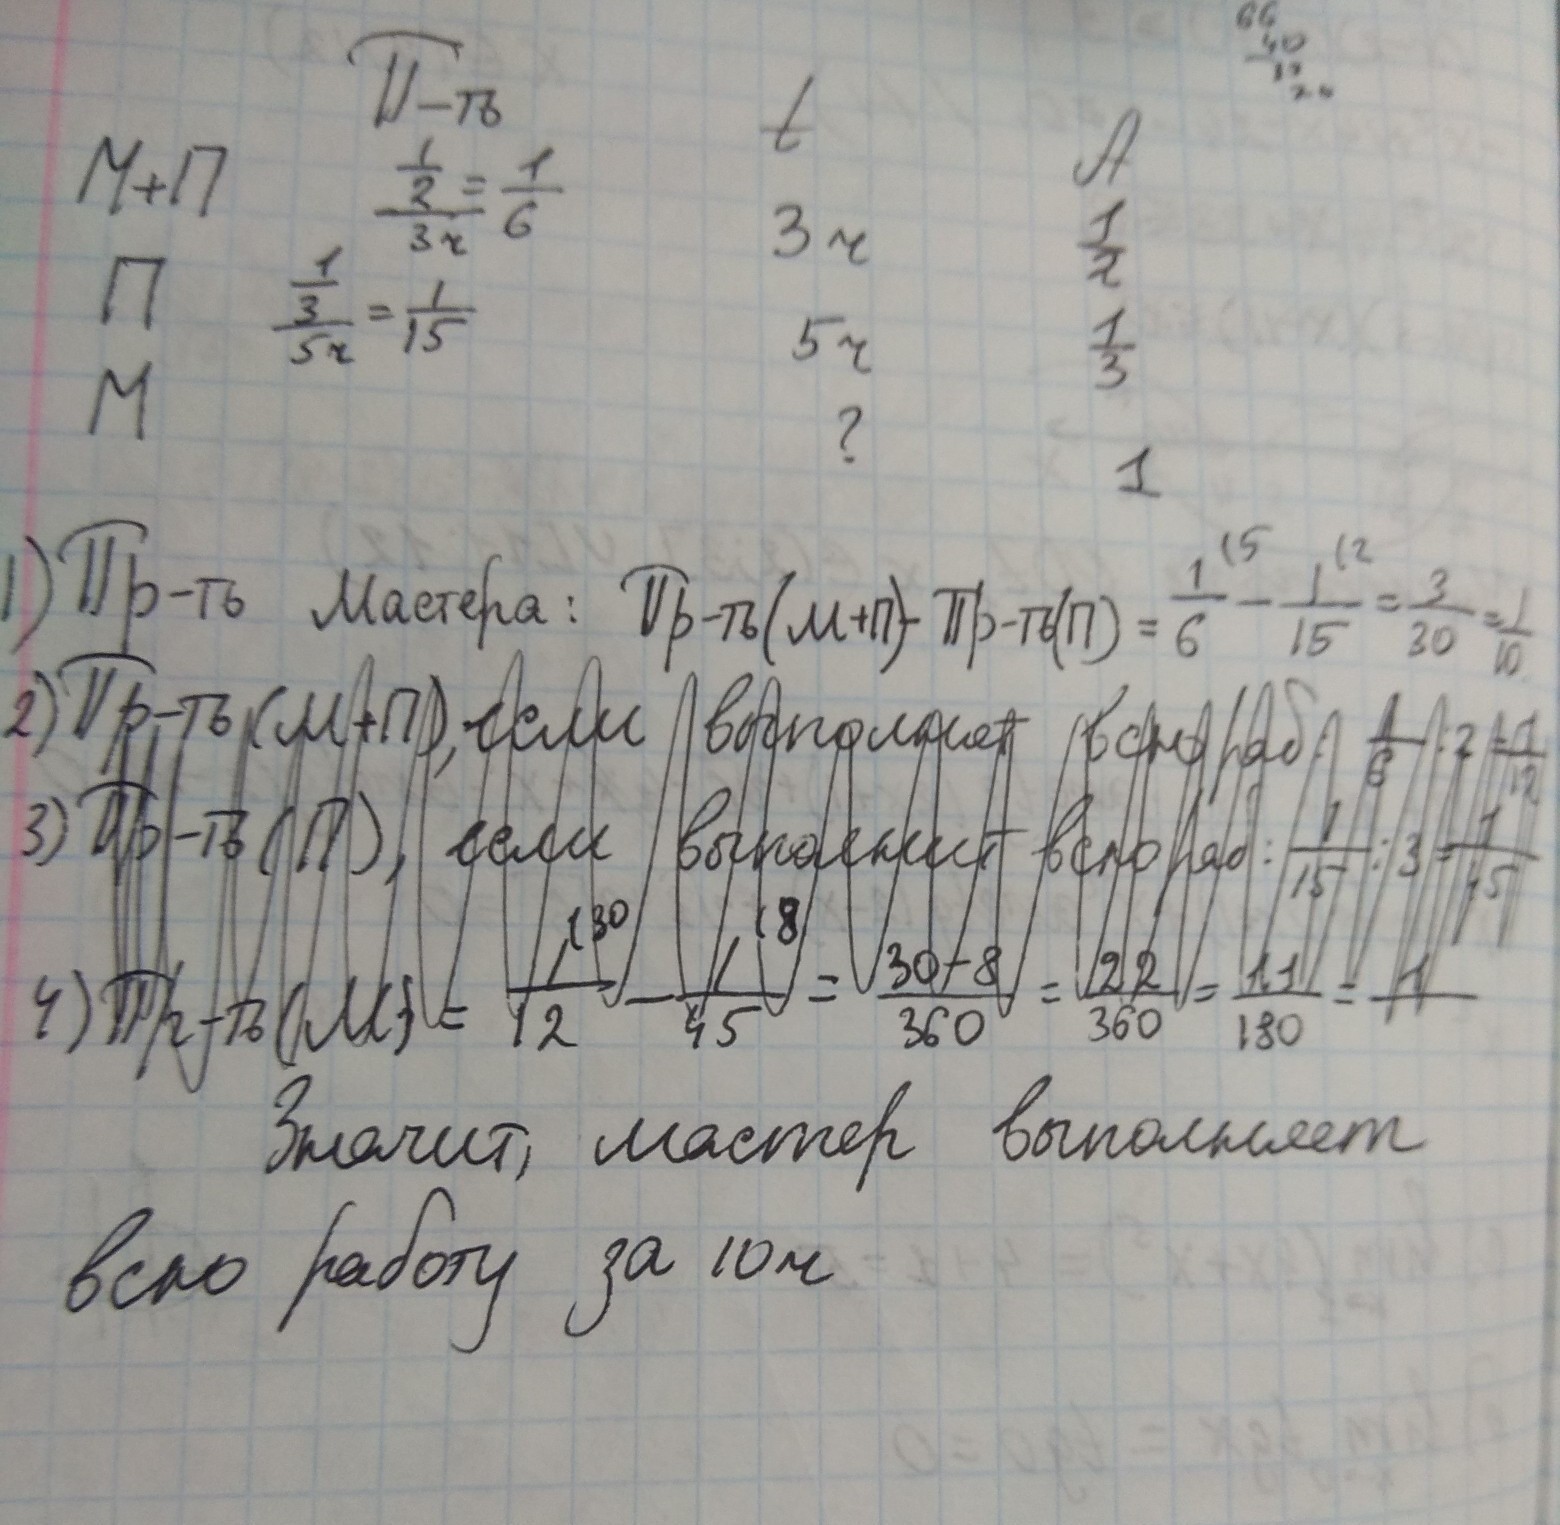 66
40
12
24
П-ть t A
М+П 1/2 / 3ч = 1/6 3ч 1/2
П 1/3 / 5ч = 1/15 5ч 1/3
М ? 1
1) Пр-ть Мастера: Пр-ть(М+П)- Пр-ть(П) = 1/6 (5 - 1/15 (2 = 3/30 = 1/10
2) Пр-ть (М+П), если выполнят всю раб: 1/6 : 2 = 1/12
3) Пр-ть (П), если выполнит всю раб: 1/15 : 3 = 1/45
4) Пр-ть (М) = 1/12 (30 - 1/45 (8 = 30-8/360 = 22/360 = 11/180 = 1/
Значит, мастер выполняет
всю работу за 10ч